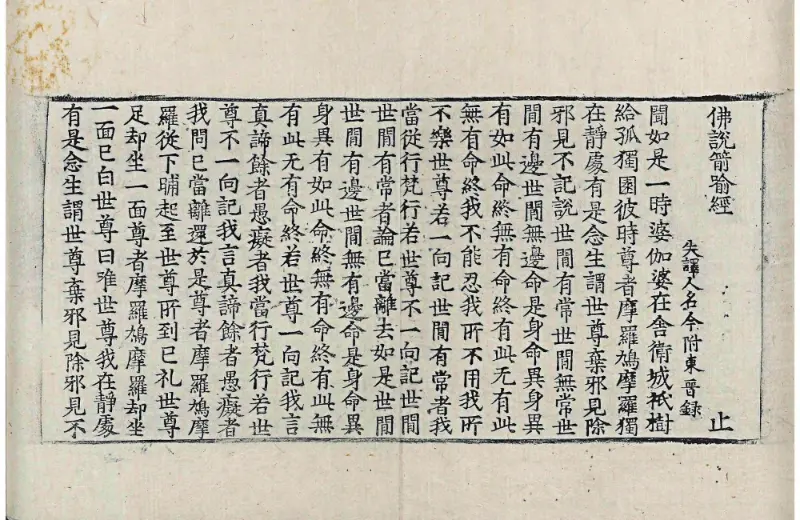 佛說箭喻經
失譯人名今附東晉錄
止
聞如是一時婆伽婆在舍衛城祇樹
給孤獨園彼時尊者摩羅鳩摩羅獨
在靜處有是念生謂世尊棄邪見除
邪見不記說世間有常世間無常世
間有邊世間無邊命是身命異身異
有如此命終無有命終有此无有此
無有命終我不能忍我所不用我所
不樂世尊若一向記世間有常者我
當從行梵行若世尊不一向記世間
世間有常者論已當離去如是世間
世間有邊世間無有邊命是身命異
身異有如此命終無有命終有此無
有此无有命終若世尊一向記我言
真諦餘者愚癡者我當行梵行若世
尊不一向記我言真諦餘者愚癡者
我問已當離還於是尊者摩羅鳩摩
羅從下晡起至世尊所到已礼世尊
足却坐一面尊者摩羅鳩摩羅却坐
一面已白世尊曰唯世尊我在靜處
有是念生謂世尊棄邪見除邪見不